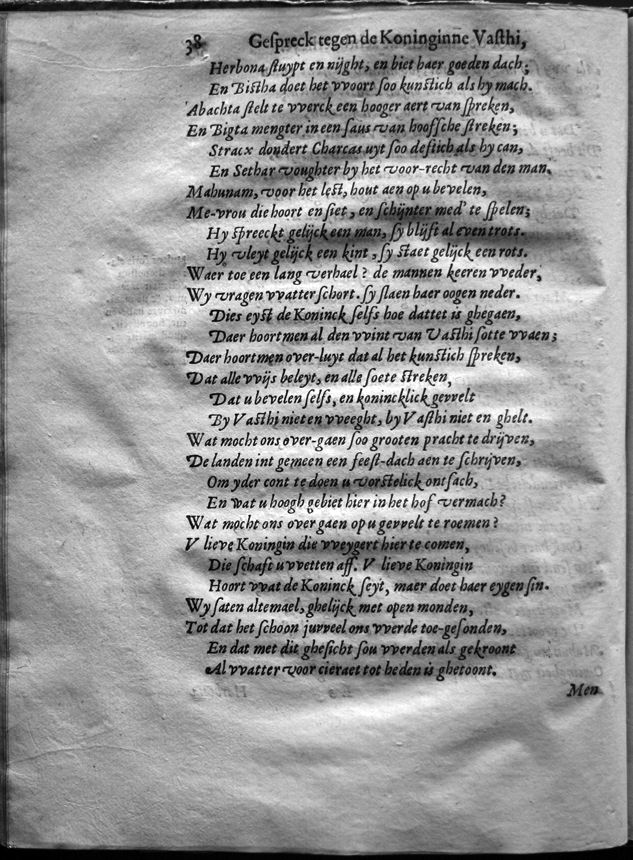 38 Gespreck tegen de Koninginne Vasthi,
Herbona stuypt en nijght, en biet haer goeden dach;
En Bistha doet het vvoort soo kunstich als hy mach.
Abachta stelt te vverck een hooger aert van spreken,
En Bigta mengter in een saus van hoofsche streken;
Stracx dondert Charcas uyt soo deftich als hy can,
En Sethar voughter by het voor-recht van den man.
Mahunam, voor het lest, hout aen op u bevelen,
Me-vrou die hoort en siet, en schijnter med' te spelen;
Hy spreeckt gelijck een man, sy blijft al even trots.
Hy vleyt gelijck een kint, sy staet gelijck een rots.
Waer toe een lang verhael? de mannen keeren vveder,
Wy vragen vvatter schort. sy slaen haer oogen neder.
Dies eyst de Koninck selfs hoe dattet is ghegaen,
Daer hoortmen al den vvint van Vasthi sotte vvaen;
Daer hoortmen over-luyt dat al het kunstich spreken,
Dat alle vvijs beleyt, en alle soete streken,
Dat u bevelen selfs, en konincklick gevvelt
By Vasthi niet en vveeght, by Vasthi niet en ghelt.
Wat mocht ons over-gaen soo grooten pracht te drijven,
De landen int gemeen een feest-dach aen te schrijven,
Om yder cont te doen u vorstelick ontsach,
En wat u hoogh gebiet hier in het hof vermach?
Wat mocht ons over gaen op u gevvelt te roemen?
V lieve Koningin die vveygert hier te comen,
Die schaft u vvetten aff. V lieve Koningin
Hoort vvat de Koninck seyt, maer doet haer eygen sin.
Wy saten altemael, ghelijck met open monden,
Tot dat het schoon juvveel ons vverde toe-gesonden,
En dat met dit ghesicht sou vverden als gekroont
Al vvatter voor cieraet tot heden is ghetoont.
Men